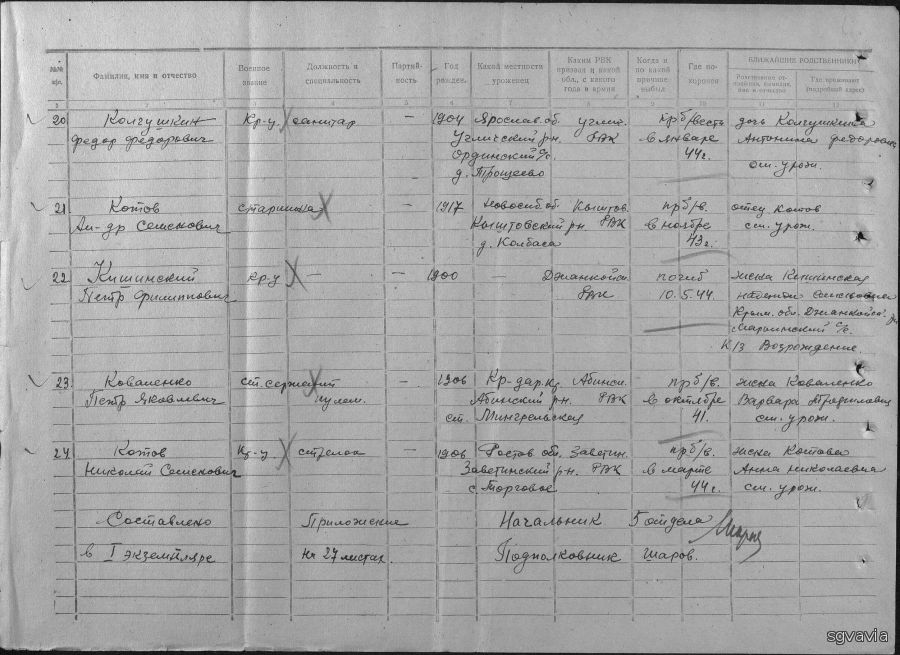 №№ п/п. Фамилия, имя и отчество Военное звание Должность и специальность Партийность Год рожден. Какой местности уроженец Каким РВК призван и какой обл., с какого года в армии Когда и по какой причине выбыл Где похоронен БЛИЖАЙШИЕ РОДСТВЕННИКИ
Родственные отношения, фамилия, имя и отчество Где проживают (подробный адрес)
1 2 3 4 5 6 7 8 9 10 11 12
20 Колгушкин Кр-ц санитар — 1904 Ярослав. об. Углич. пр б/весть дочь Колгушкина
Федор Федорович Угличский рн. РВК в январе Антонина Федоровна
Ординский с/с. 44 г. см. урож.
д. Трощеево
21 Котов старшина — 1917 Новосиб. об. Кыштов. пр б/в. отец Котов
Ал-др Семенович Кыштовский рн. РВК в ноябре см. урож.
д. Колбаса 43 г.
22 Кишинский кр-ц — — 1900 — Джанкойск. погиб жена Кишинская
Петр Филиппович РВК 10.5.44.
Крым. обл. Джанкойск. рн
с/с.
К/з Возрождение.
23 Коваленко ст. сержант — 1906 Кр-дар. кр. Абинск. пр б/в. жена Коваленко
Петр Яковлевич пулем. Абинский рн. РВК в октябре Варвара
ст. Мингрельская 41. см. урож.
24 Котов Кр-ц стрелок — 1906 Ростов. об. Заветин. пр б/в. жена Котова
Николай Семенович Заветинский рн. РВК в марте Анна Николаевна
с. Торговое 44 г. см. урож.
Составлено Приложение Начальник 5 отдела
в I экземпляре на 27 листах Подполковник Шаров.
sgvavia